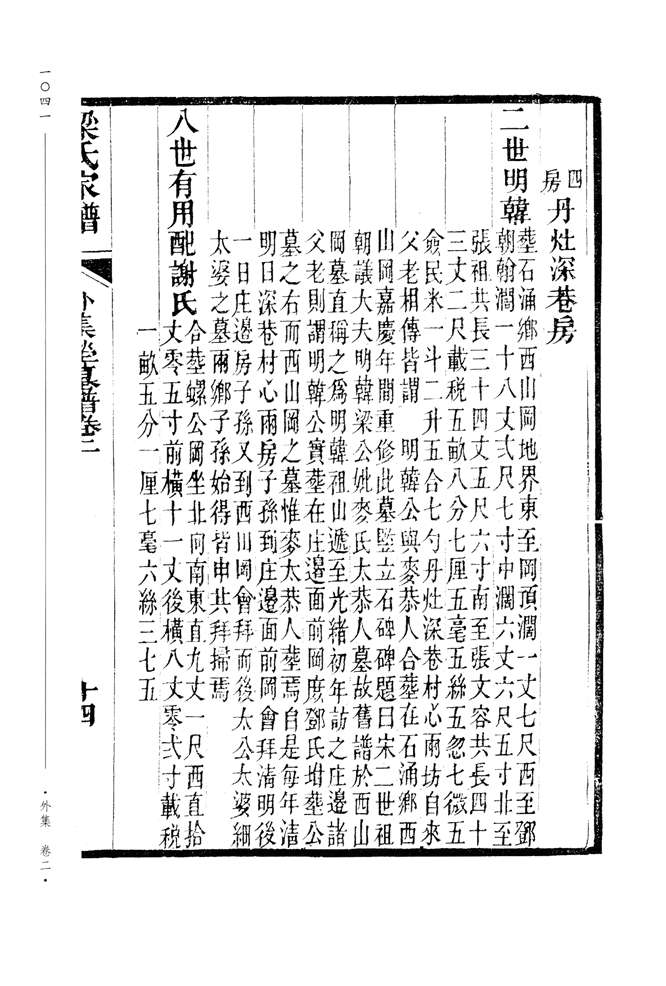 四房丹灶深巷房
二世明韓
塟石涌鄉西山岡地界東至岡頂濶一丈七尺西至鄧
朝翰濶一十八丈弍尺七寸中濶六丈六尺五寸北至
張祖共長三十四丈五尺六寸南至張文容共長四十
三丈二尺載税五畝八分七厘五毫五絲五忽七微五
僉民米一斗二升五合七勺丹灶深巷村心兩坊自來
父老相傳皆謂 明韓公與麥恭人合塟在石涌鄉西
山岡嘉慶年間重修此墓竪立石碑碑題曰宋二世祖
朝議大夫明韓梁公妣麥氏太恭人墓故舊譜於西山
岡墓直稱之爲明韓祖山遞至光緒初年訪之庄邊諸
父老則謂明韓公實塟在庄邊面前岡庶鄧氏坿塟公
墓之右而西山岡之墓惟麥太恭人塟焉自是每年清
明日深巷村心兩房子孫到庄邊面前岡會拜清明後
一日庄邊房子孫又到西山岡會拜而後太公太婆細
太婆之墓兩鄉子孫始得皆申共拜掃焉
八世有用配謝氏
合塟螺公岡坐北向南東直九丈一尺西直拾
丈零五寸前横十一丈後横八丈零弍寸載税
一畝五分一厘七毫六絲三七五
梁氏家譜
外集塋墓譜卷二
十四
一〇四一
·外集 卷二·